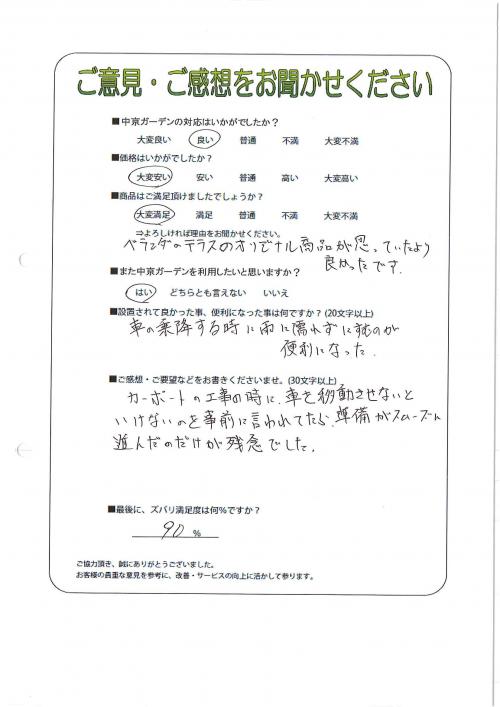 ご意見・ご感想をお聞かせください
■中京ガーデンの対応はいかがでしたか？
大変良い 良い 普通 不満 大変不満
■価格はいかがでしたか？
大変安い 安い 普通 高い 大変高い
■商品はご満足頂けましたでしょうか？
大変満足 満足 普通 不満 大変不満
⇒よろしければ理由をお聞かせください。
ベランダのテラスのオリジナル商品が思っていたより
良かったです.
■また中京ガーデンを利用したいと思いますか？
はい どちらとも言えない いいえ
■設置されて良かった事、便利になった事は何ですか？(20文字以上)
車の乗降する時に雨に濡れずにすむのが
便利になった.
■ご感想・ご要望などをお書きくださいませ。(30文字以上)
カーポートの工事の時に、車を移動させないと
いけないのを事前に言われてたら、準備がスムーズに
進んだのだけが残念でした.
■最後に、ズバリ満足度は何％ですか？
90 %
ご協力頂き、誠にありがとうございました。
お客様の貴重な意見を参考に、改善・サービスの向上に活かして参ります。